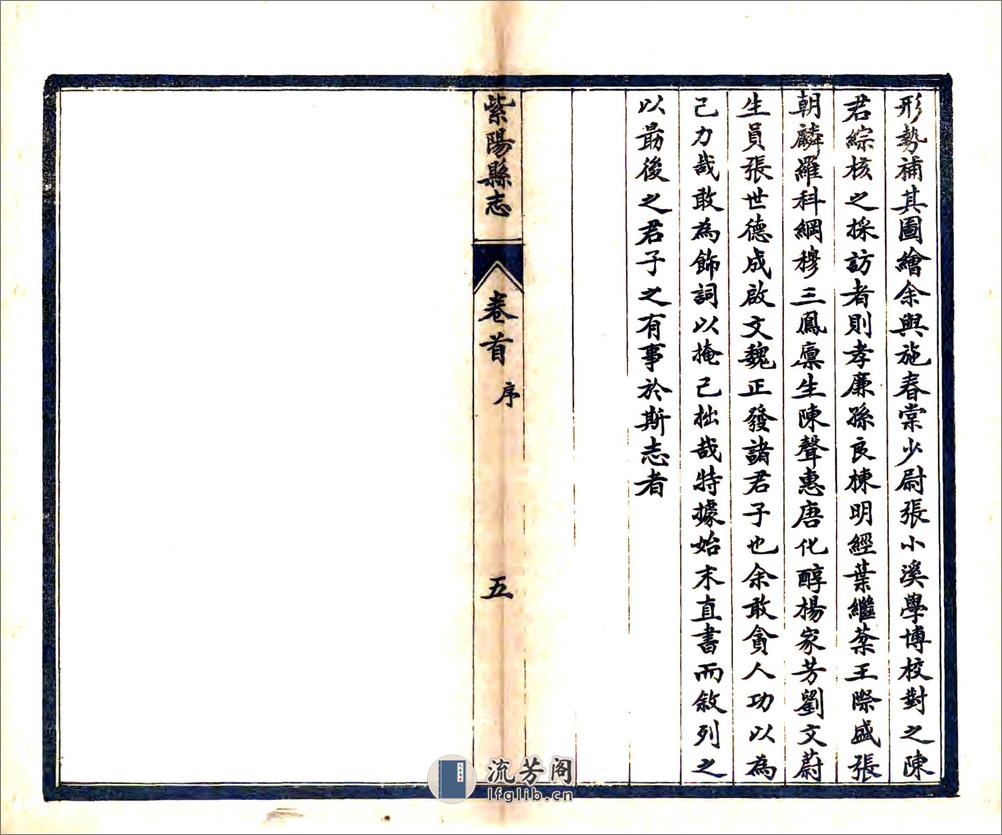 形勢補其圖繪余與施春棠少尉張小溪學博校對之陳
君綜核之採訪者則孝廉孫良棟明經葉繼葇王際盛張
朝麟羅科綱穆三鳳廩生陳聲惠唐化醇楊家芳劉文蔚
生員張世德成啟文魏正發諸君子也余敢貪人功以為
己力哉敢為飾詞以掩己拙哉特據始末直書而敘列之
以最後之君子之有事於斯志者
紫陽縣志
卷首
序
五
流芳阁
lfglib.cn